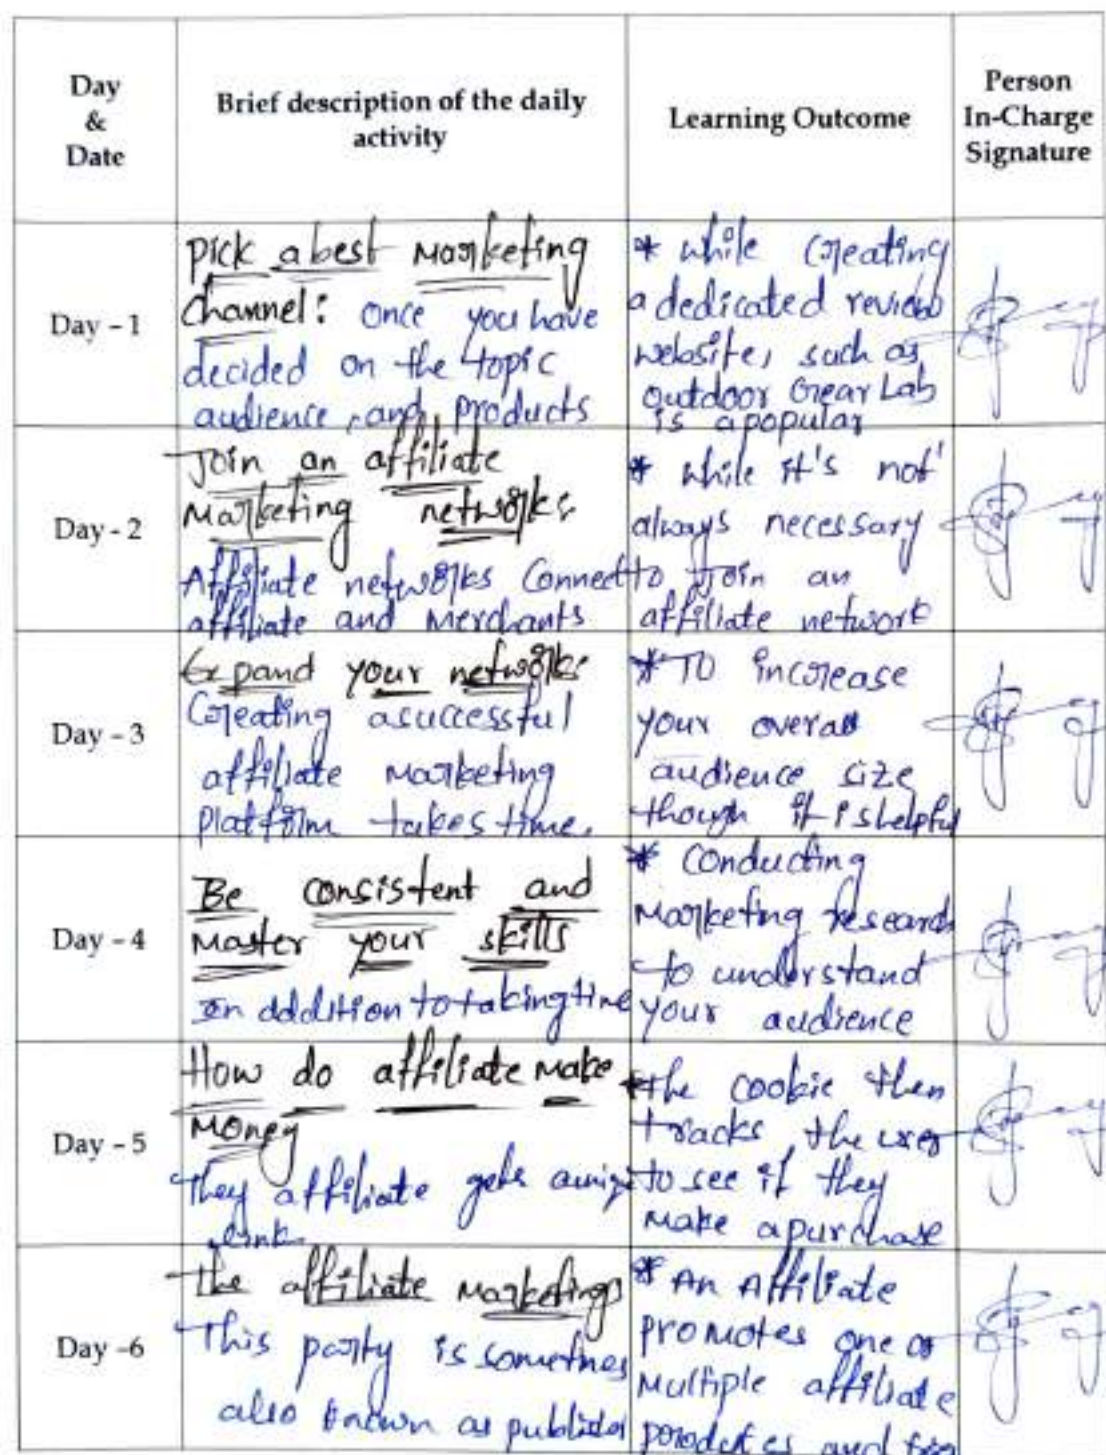 Day
&
Date
Brief description of the daily
activity
Learning Outcome
Person
In-Charge
Signature
Day - 1
Pick a best Marketing
Channel: Once you have
decided on the topic
audience, and products
* while Creating
a dedicated review
website, such as
outdoor Gear Lab
is a popular
Day - 2
Join an affiliate
Marketing networks:
Affiliate networks Connect
affiliate and Merchants
* while it's not
always necessary
to Join an
affiliate network
Day - 3
Expand your networks
Creating a successful
affiliate Marketing
Platform takes time.
* TO increase
your overall
audience size
though it is helpful
Day - 4
Be consistent and
Master your skills
In addition to taking time
* Conducting
Marketing research
to understand
your audience
Day - 5
How do affiliate Make
Money
They affiliate gets
link
* the cookie then
tracks the user
to see if they
Make a purchase
Day -6
The affiliate Marketings
This party is sometimes
also known as publisher
* An Affiliate
promotes one or
Multiple affiliate
products and